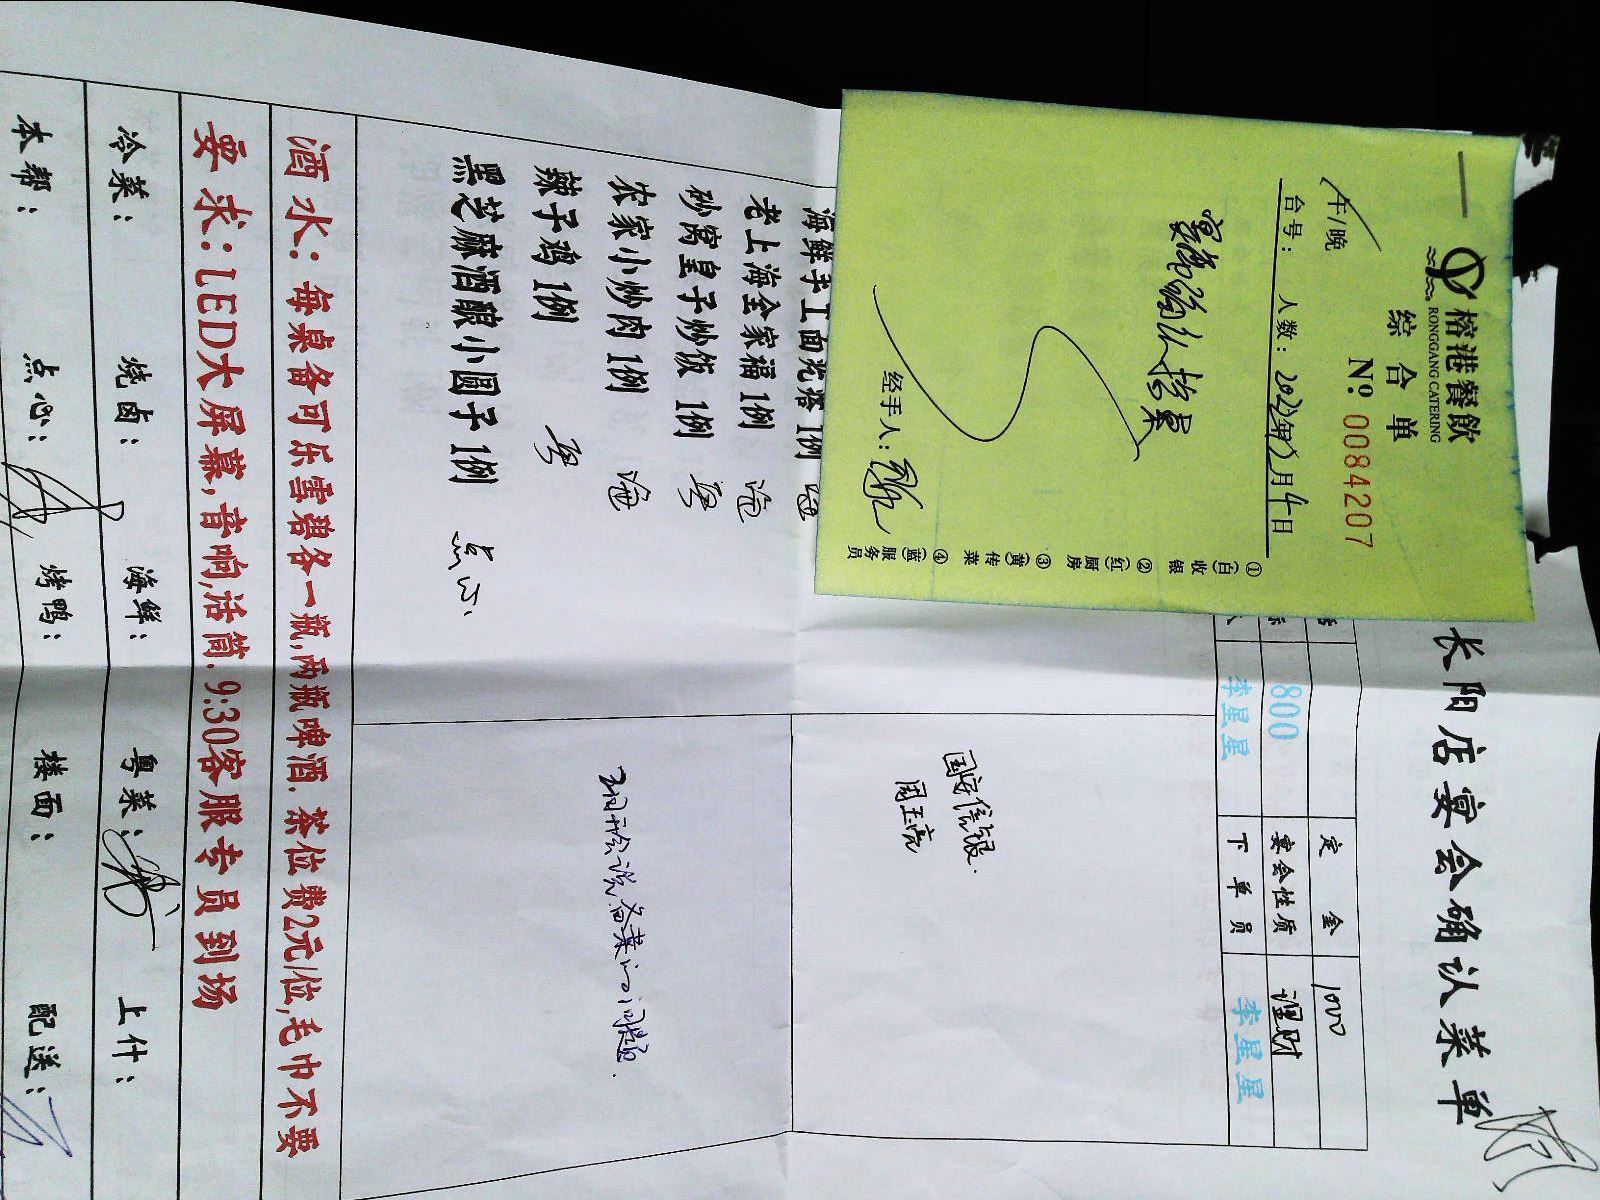 榕港餐飲
RONGGANG CATERING
综合单
№ 0084207
午/晚
台号： 人数： 年 月4日
经手人：
①(白)收银
②(红)厨房
③(黄)传菜
④(蓝)服务员
长阳店宴会确认菜单
定金 1000
800 宴会性质 理财
李星星 下单员 李星星
国宾信银.
周玉亮
海鲜手工面疙瘩 1例
老上海全家福 1例
砂窝皇子炒饭 1例 粤
农家小炒肉 1例
辣子鸡 1例 粤
黑芝麻酒酿小圆子 1例 点心
酒水：每桌备可乐雪碧各一瓶,两瓶啤酒.茶位费2元/位,毛巾不要
要求：LED大屏幕,音响,话筒.9:30客服专员到场
冷菜： 烧卤： 海鲜： 粤菜： 上什：
本帮： 点心： 烤鸭： 楼面： 配送：